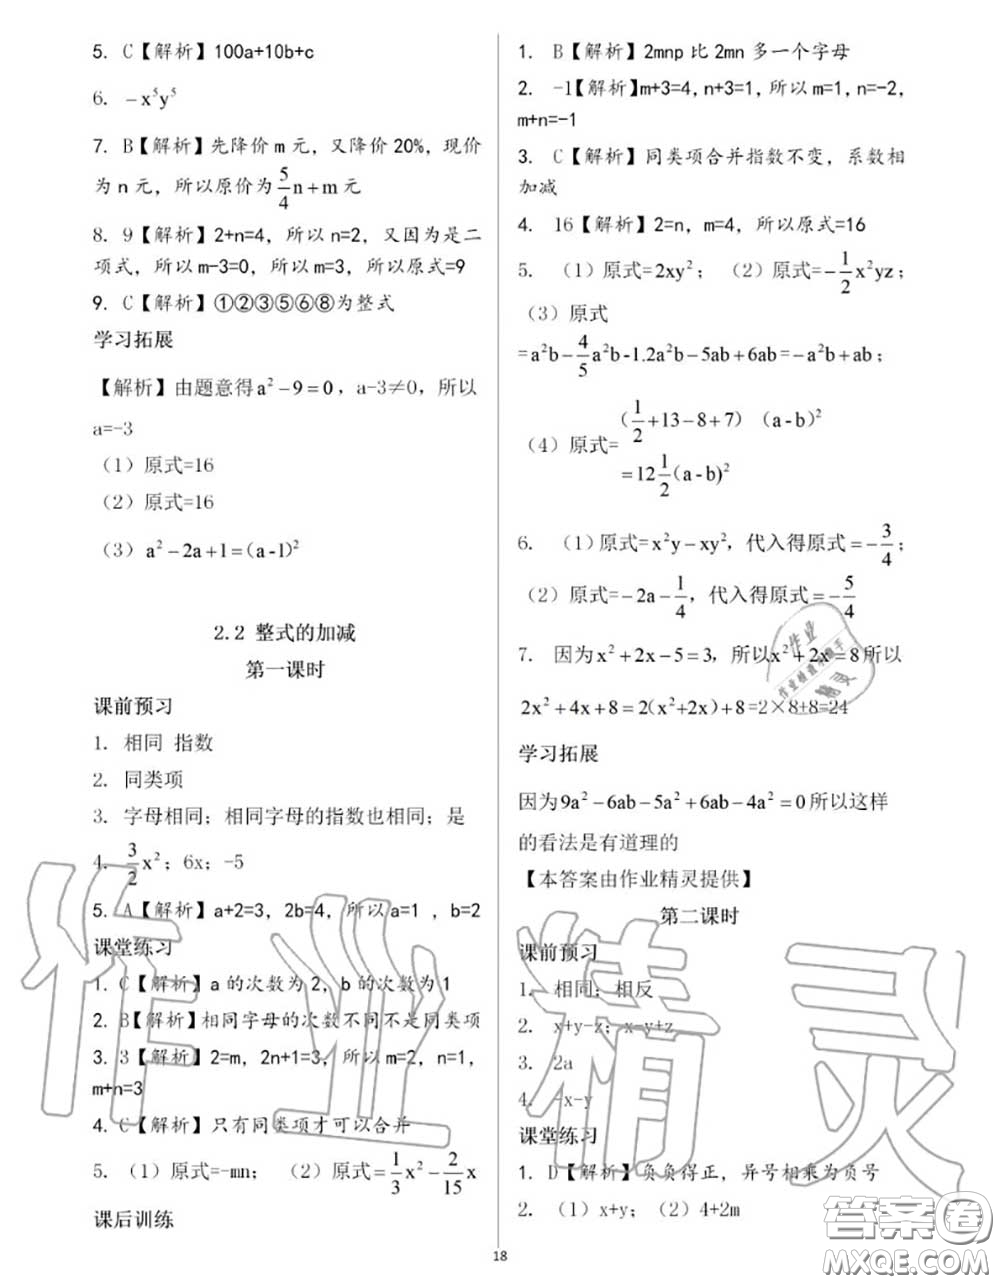 5. C【解析】100a+10b+c
6. －x⁵y⁵
7. B【解析】先降价 m 元，又降价 20%，现价
为 n 元，所以原价为 5/4 n＋m 元
8. 9【解析】2+n=4，所以 n=2，又因为是二
项式，所以 m-3=0，所以 m=3，所以原式=9
9. C【解析】①②③⑤⑥⑧为整式
学习拓展
【解析】由题意得 a²－9＝0，a-3≠0，所以
a=-3
（1）原式=16
（2）原式=16
（3） a²－2a＋1＝(a-1)²
2.2 整式的加减
第一课时
课前预习
1. 相同 指数
2. 同类项
3. 字母相同；相同字母的指数也相同；是
4. 3/2 x²；6x；-5
5. A【解析】a+2=3，2b=4，所以 a=1 ，b=2
课堂练习
1. C【解析】a 的次数为 2，b 的次数为 1
2. B【解析】相同字母的次数不同不是同类项
3. 3【解析】2=m，2n+1=3，所以 m=2，n=1，
m+n=3
4. C【解析】只有同类项才可以合并
5. （1）原式=-mn； （2）原式＝1/3 x²－2/15 x
课后训练
1. B【解析】2mnp 比 2mn 多一个字母
2. -1【解析】m+3=4，n+3=1，所以 m=1，n=-2，
m+n=-1
3. C【解析】同类项合并指数不变，系数相
加减
4. 16【解析】2=n，m=4，所以原式=16
5. （1）原式＝2xy²； （2）原式＝－1/2 x²yz；
（3）原式
=a²b－4/5 a²b-1.2a²b－5ab＋6ab＝－a²b＋ab；
（4）原式= (1/2＋13－8＋7) (a-b)²
＝12 1/2 (a-b)²
6. （1）原式=x²y－xy²，代入得原式＝－3/4；
（2）原式=－2a－1/4，代入得原式＝－5/4
7. 因为 x²＋2x－5＝3，所以 x²＋2x＝8 所以
2x²＋4x＋8＝2(x²+2x)＋8=2×8+8=24
学习拓展
因为 9a²－6ab－5a²＋6ab－4a²＝0 所以这样
的看法是有道理的
【本答案由作业精灵提供】
第二课时
课前预习
1. 相同；相反
2. x+y-z；x-y+z
3. 2a
4. -x-y
课堂练习
1. D【解析】负负得正，异号相乘为负号
2. （1）x+y；（2）4+2m
18
作业精灵
答案卷
MXQE.COM